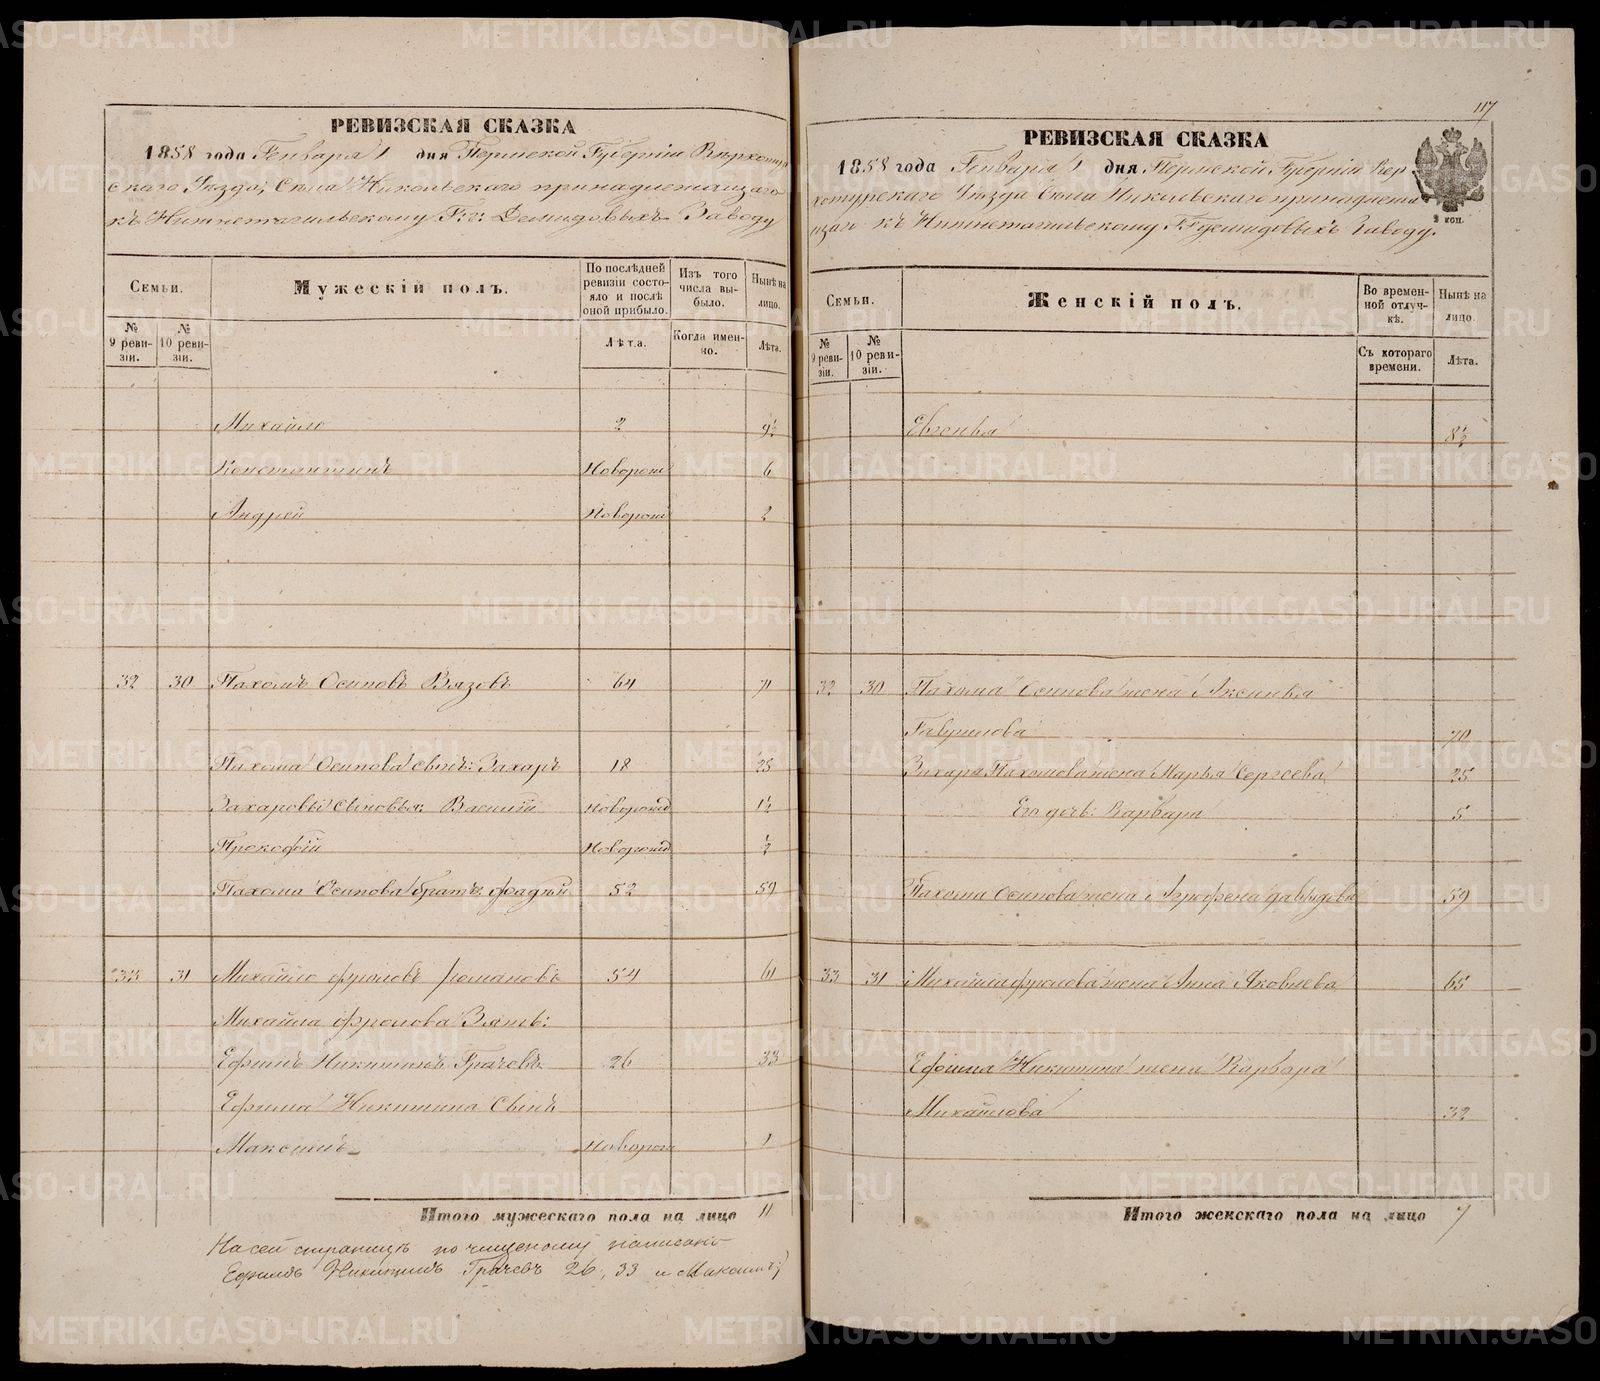 РЕВИЗСКАЯ СКАЗКА
1858 года Генваря 1 дня Пермской Губерніи Верхотур
скаго Уѣзда, Села Никольскаго принадлежащаго
къ Нижнетагильскому Г.г. Демидовыхъ Заводу
Семьи.
Мужескій полъ.
По послѣдней ревизіи состояло и послѣ оной прибыло.
Изъ того числа выбыло.
Нынѣ на лицо.
№ 9 ревизіи.
№ 10 ревизіи.
Лѣта.
Когда именно.
Лѣта.
Михайло 2 9½
Константинъ Новорож 6
Андрей Новорож 2
32 30 Пахомъ Осиповъ Вязовъ 64 71
Пахома Осипова сынъ: Захаръ 18 25
Захаровы сыновья: Василій Новорожд 1½
Прокофій Новорожд ½
Пахома Осипова братъ Фадѣй 52 59
33 31 Михайло Фроловъ Романовъ 54 61
Михайла Фролова Зять:
Ефимъ Никитинъ Грачевъ 26 33
Ефима Никитина Сынъ
Максимъ Новорож 1
Итого мужескаго пола на лицо 11
На сей страницѣ по чищеному написано
Ефимъ Никитинъ Грачевъ 26, 33 и Максимъ
117
РЕВИЗСКАЯ СКАЗКА
1858 года Генваря 1 дня Пермской Губерніи Вер
хотурскаго Уѣзда Села Никольскаго принадлежа
щаго къ Нижнетагильскому Г.Г. Демидовыхъ Заводу.
2 коп.
Семьи.
Женскій полъ.
Во временной отлучкѣ.
Нынѣ на лицо.
№ 9 ревизіи.
№ 10 ревизіи.
Съ котораго времени.
Лѣта.
Евгенья 8½
32 30 Пахома Осипова жена Аксинья
Гаврилова 70
Захара Пахомова жена Марья Сергѣева 25
Его дочь: Варвара 5
Пахома Осипова жена Агрофена Давыдова 59
33 31 Михайли Фролова жена Анна Яковлева 65
Ефима Никитина жена Варвара
Михайлова 32
Итого женскаго пола на лицо 7
METRIKI.GASO-URAL.RU